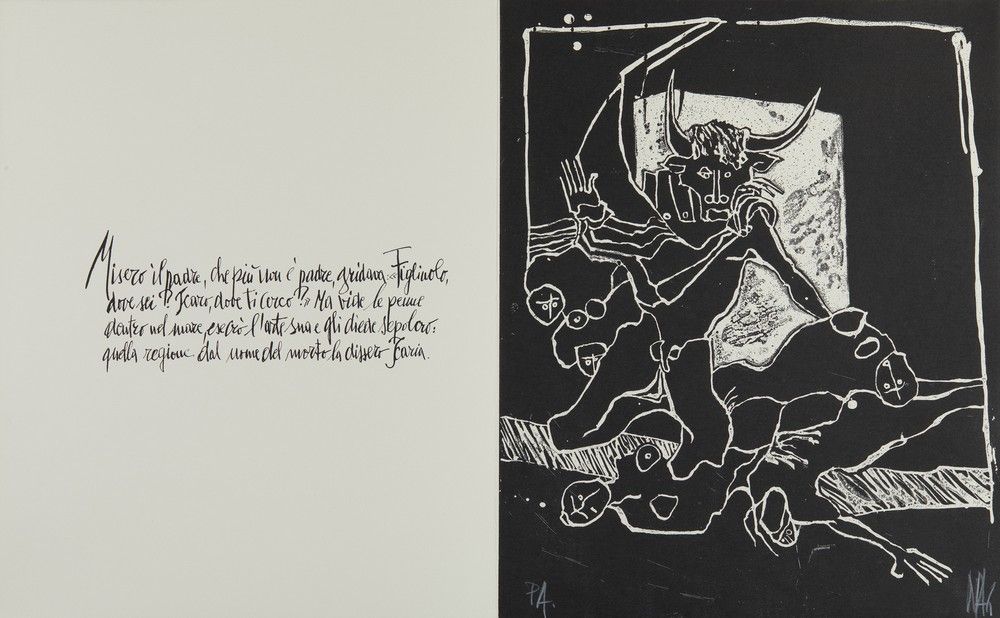 Misero il padre, che più non è padre, gridava «Figliuolo,
dove sei? Icaro, dove ti cerco?» Ma vide le penne
dentro nel mare, esecrò l'arte sua e gli diede sepolcro:
quella regione dal nome del morto la dissero Icaria.
P.A.